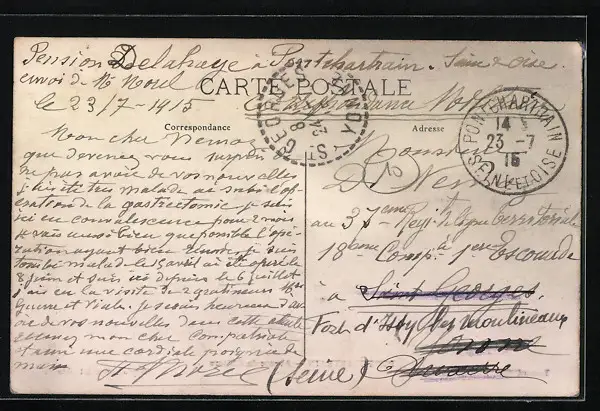 Pension Delahaye à Pontchartrain. Seine & Oise.
envoi de Mr Morel
CARTE POSTALE
le 23/7-1915
Correspondance Militaire
Correspondance
Adresse
ST GEORGES
24
8
PONTCHARTRAIN
14
23 -7
15
SEINE-ET-OISE
Mon cher
que devenez vous surpris
ne pas avoir de vos nouvelles
j'ai été très malade ai subi l'opé
ration de la gastrectomie je suis
ici en convalescence pour 2 mois
je vais aussi bien que possible l'opé-
ration ayant bien réussi je suis
tombé malade le 15 avril ai été opéré le
8 juin et suis ici depuis le 6 juillet
j'ai eu la visite de 2 gratineurs Mrs
Guerre et Viale. je serais heureux d'a
voir de vos nouvelles dans cette attente
mon cher compatriote
et ami une cordiale poignée de
main
Monsieur
D.
au 37eme Régt Territoriale
18ème Compie 1ère Escouade
à Saint Georges.
Fort d'Issy les Moulineaux
(Seine)